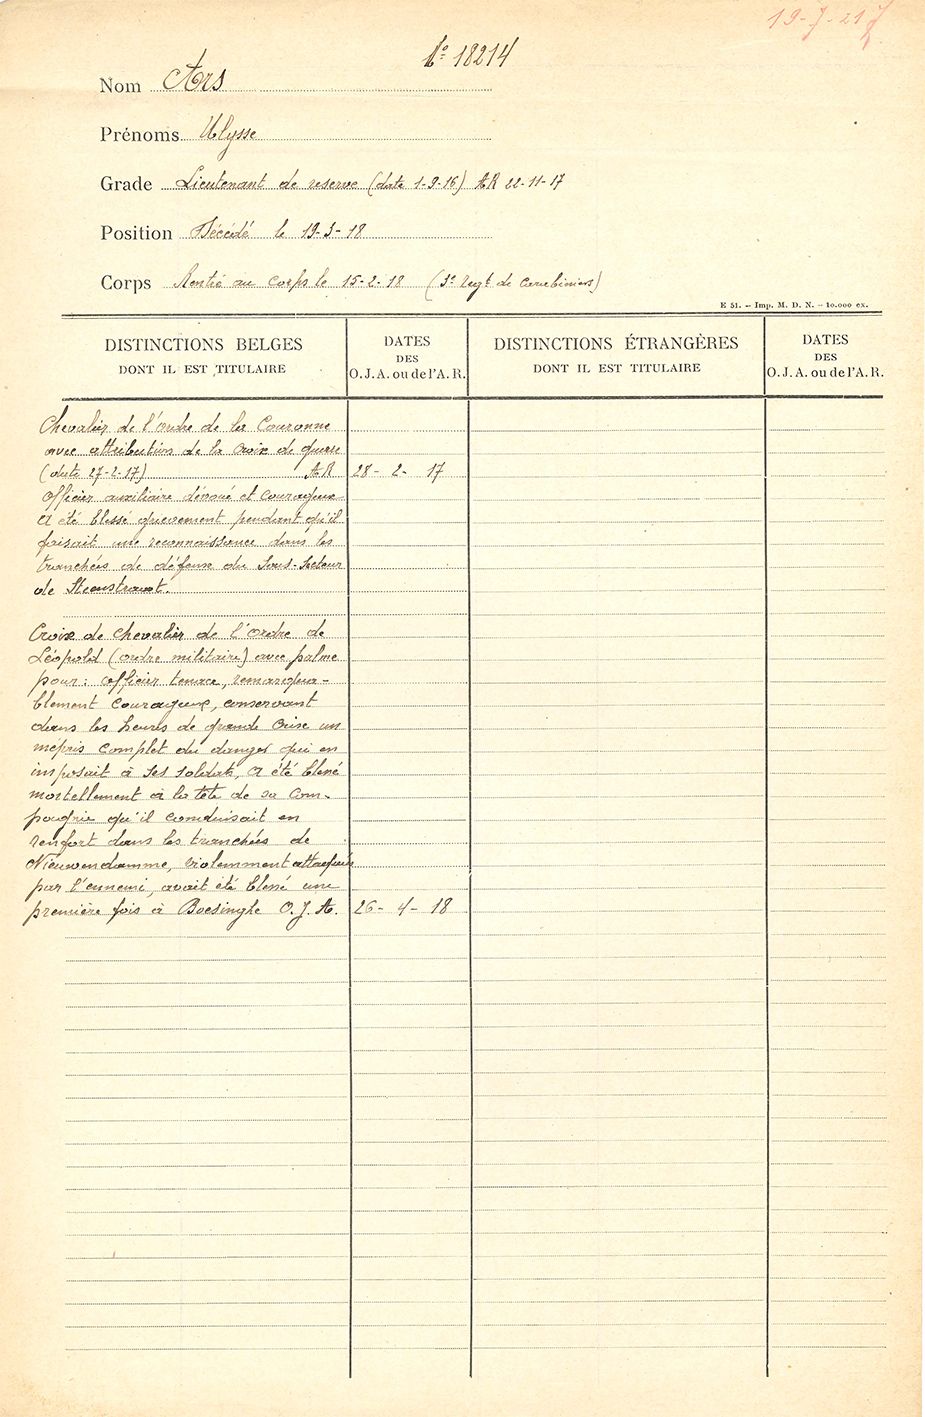 19-7-21
Nº 18214
Nom Ars
Prénoms Ulysse
Grade Lieutenant de reserve (date 1-9-16) AR 22-11-17
Position Décédé le 19-3-18
Corps Rentré au corps le 15-2-18 (3e Regt de Carabiniers)
E 51. – Imp. M. D. N. – 10.000 ex.
DISTINCTIONS BELGES
DONT IL EST TITULAIRE
DATES
DES
O.J.A. ou de l'A.R.
DISTINCTIONS ÉTRANGÈRES
DONT IL EST TITULAIRE
DATES
DES
O.J.A. ou de l'A.R.
Chevalier de l'ordre de la Couronne
avec attribution de la croix de guerre
(date 27-2-17) AR 28-2-17
officier auxiliaire dévoué et courageux
A été blessé grievement pendant qu'il
faisait une reconnaissance dans les
tranchées de défense du Sous-Secteur
de Steenstraat.
Croix de chevalier de l'ordre de
Léopold (ordre militaire) avec palme
pour: officier tenace, remarqua-
blement courageux, conservant
dans les heures de grande crise un
mépris complet du danger qui en
imposait à ses soldats, a été blessé
mortellement à la tête de sa com-
pagnie qu'il conduisait en
renfort dans les tranchées de
Nieuwendamme, violemment attaquée
par l'ennemi, avait été blessé une
première fois à Boesinghe O.J.A. 26-4-18